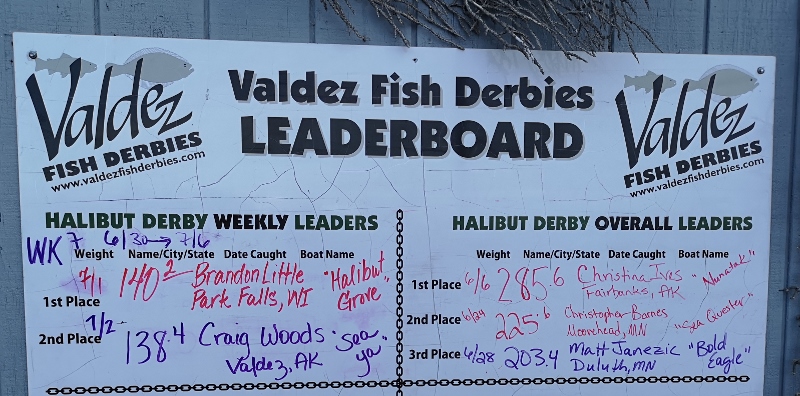 Valdez
FISH DERBIES
www.valdezfishderbies.com
Valdez Fish Derbies
LEADERBOARD
Valdez
FISH DERBIES
www.valdezfishderbies.com
HALIBUT DERBY WEEKLY LEADERS
WK 7 6/30 → 7/6
Weight Name/City/State Date Caught Boat Name
1st Place 7/1 140.2 Brandon Little "Halibut
Park Falls, WI Grove"
2nd Place 7/2 138.4 Craig Woods "Sea
Valdez, AK ya"
HALIBUT DERBY OVERALL LEADERS
Weight Name/City/State Date Caught Boat Name
1st Place 6/6 285.6 Christina Ives "Nunatak"
Fairbanks, AK
2nd Place 6/24 225.6 Christopher Barnes "Sea Quester"
Moorehead, MN
3rd Place 6/28 203.4 Matt Janezic "Bold
Duluth, MN Eagle"